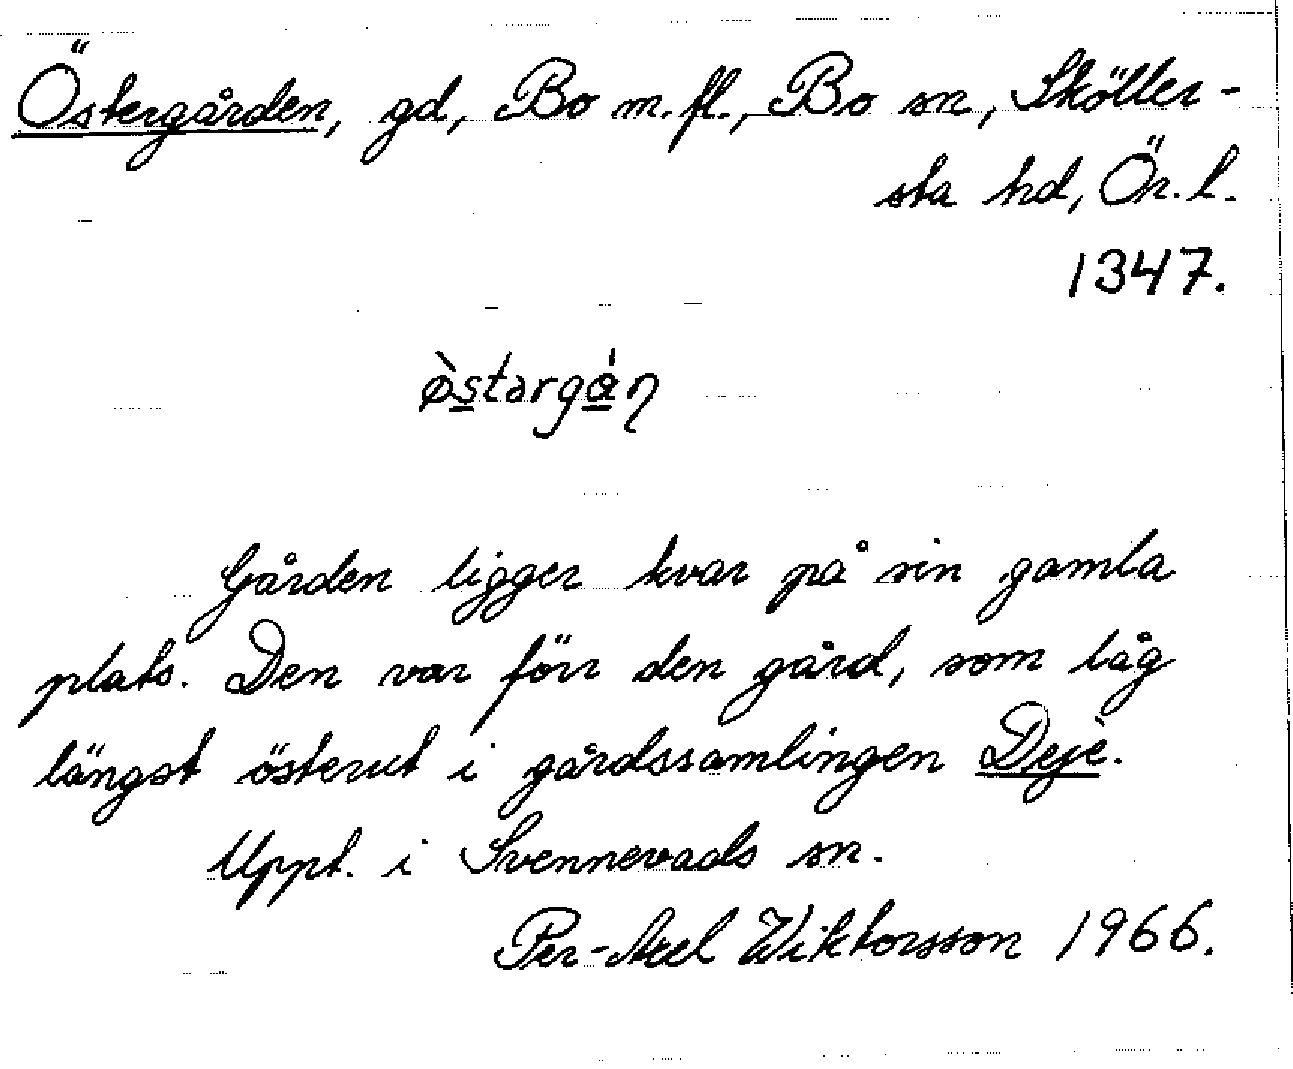 Östergården, gd, Bo m.fl., Bo sn, Sköller-
sta hd, Ör. l.
1347.
ø̀stərgá̱ɳ
Gården ligger kvar på sin gamla
plats. Den var förr den gård, som låg
längst österut i gårdssamlingen Deje.
Uppt. i Svennevads sn.
Per-Axel Wiktorsson 1966.